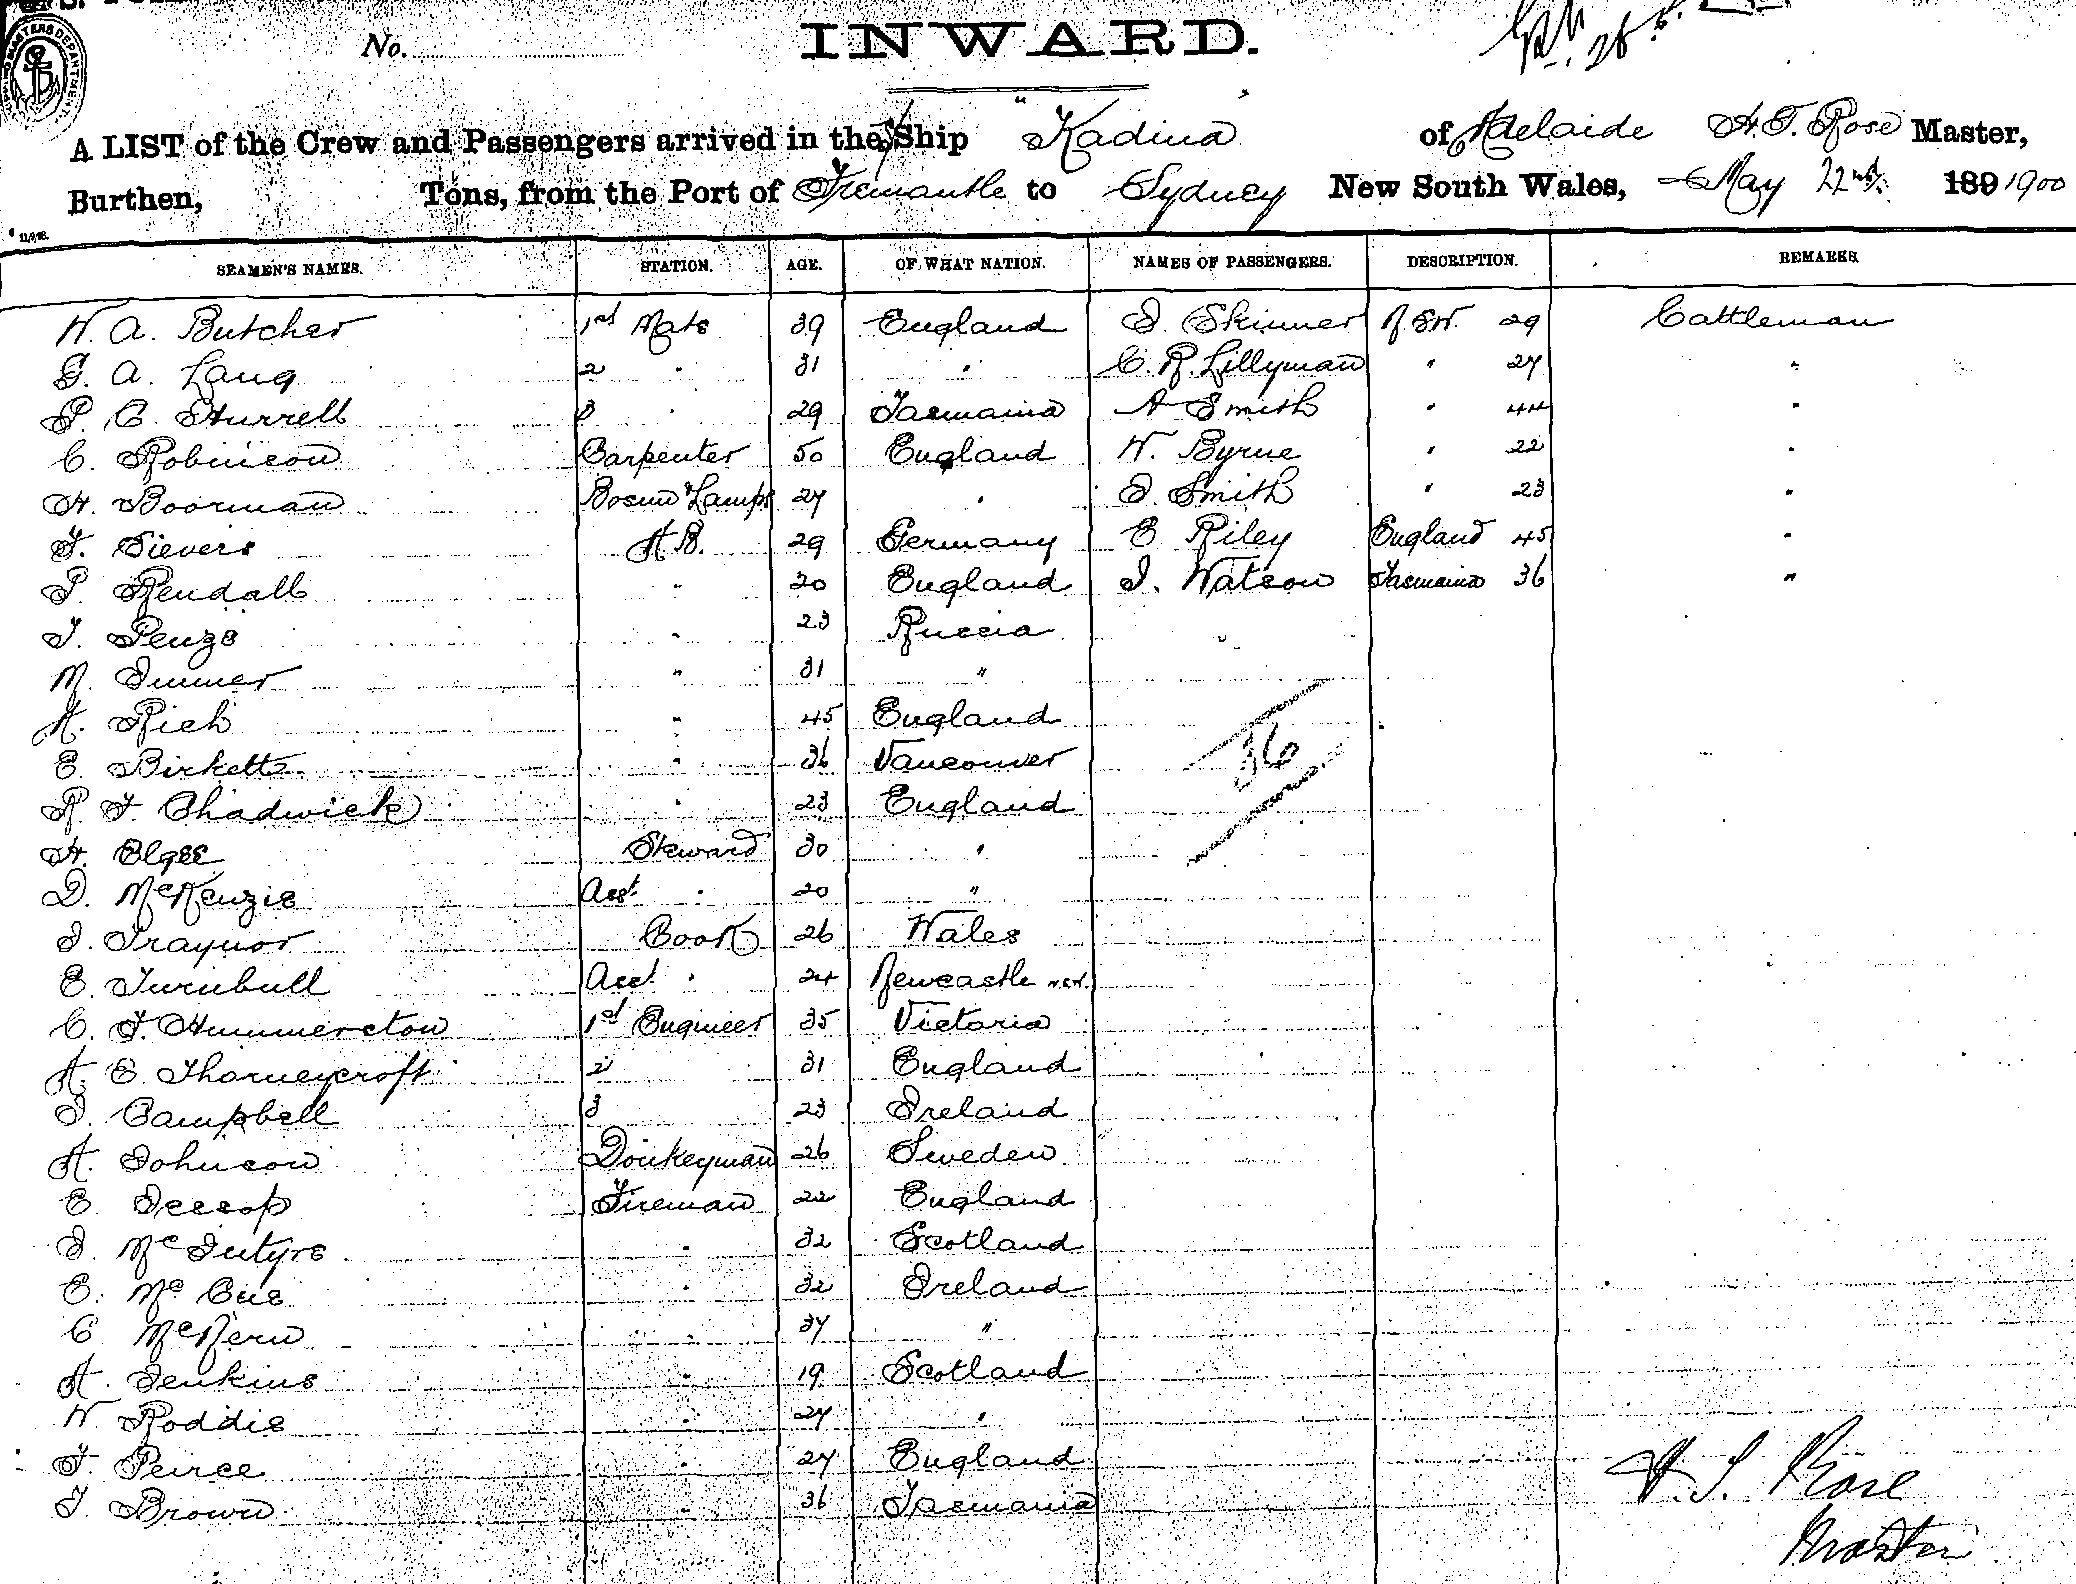 No.
INWARD.
A LIST of the Crew and Passengers arrived in the S/Ship "Kadina" of Adelaide H. T. Rose Master,
Burthen, Tons, from the Port of Fremantle to Sydney New South Wales, May 22nd 189 1900
SEAMEN'S NAMES. STATION. AGE. OF WHAT NATION. NAMES OF PASSENGERS. DESCRIPTION. REMARKS
W. A. Butcher 1st Mate 39 England J. Skinner N.S.W. 29 Cattleman
G. A. Lang 2 " 31 " C. R. Lillyman " 27 "
P. C. Hurrell 3 " 29 Tasmania A Smith " 44 "
C. Robinson Carpenter 50 England W. Byrne " 22 "
H. Boorman Bosun & Lamps 27 " J. Smith " 23 "
F. Sievers A.B. 29 Germany E Riley England 45 "
P. Rendall " 20 England J. Watson Tasmania 36 "
J. Penze " 23 Russia
M. " 31 "
A. Rich " 45 England
E. Birkett " 36 Vancouver
36
R. F. Chadwick " 23 England
H. Elgee Steward 30 "
D. McKenzie Asst. " 20 "
J. Traynor Cook 26 Wales
E. Turnbull Asst. " 24 Newcastle N.S.W.
C. F. Hummerston 1st Engineer 35 Victoria
A. E. Thorneycroft 2 31 England
J. Campbell 3 23 Ireland
A. Johnson Donkeyman 26 Sweden
E. Jessop Fireman 22 England
J. McIntyre " 32 Scotland
E. McCue " 32 Ireland
C McNern " 37 "
A. Jenkins " 19 Scotland
W Roddie " 27 "
F. Peirce " 27 England
T. Brown " 36 Tasmania
H. T. Rose
Master